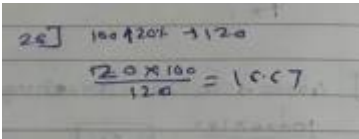 26] 100 ↑ 20% → 120
20 × 100 / 120 = 16.67